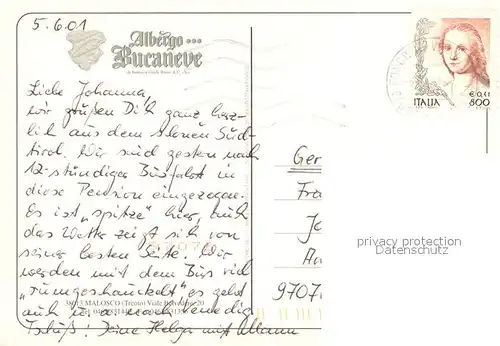 5.6.01
Albergo ***
Bucaneve
Liebe Johanna,
wir grüßen Dich ganz herz-
lich aus dem schönen Süd-
tirol. Wir sind gestern nach
12-stündiger Busfahrt in
diese Pension eingezogen.
Es ist „spitze" hier, auch
das Wetter zeigt sich von
seiner besten Seite. Wir
werden mit dem Bus viel
„rumgeschaukelt" es geht
auch ja noch Venedig
Tschüß! Deine Helga mit Mann
38013 MALOSCO (Trento) Viale Belvedere 20
ITALIA
800
Ger
Fra
Jo
Am
9707
privacy protection
Datenschutz